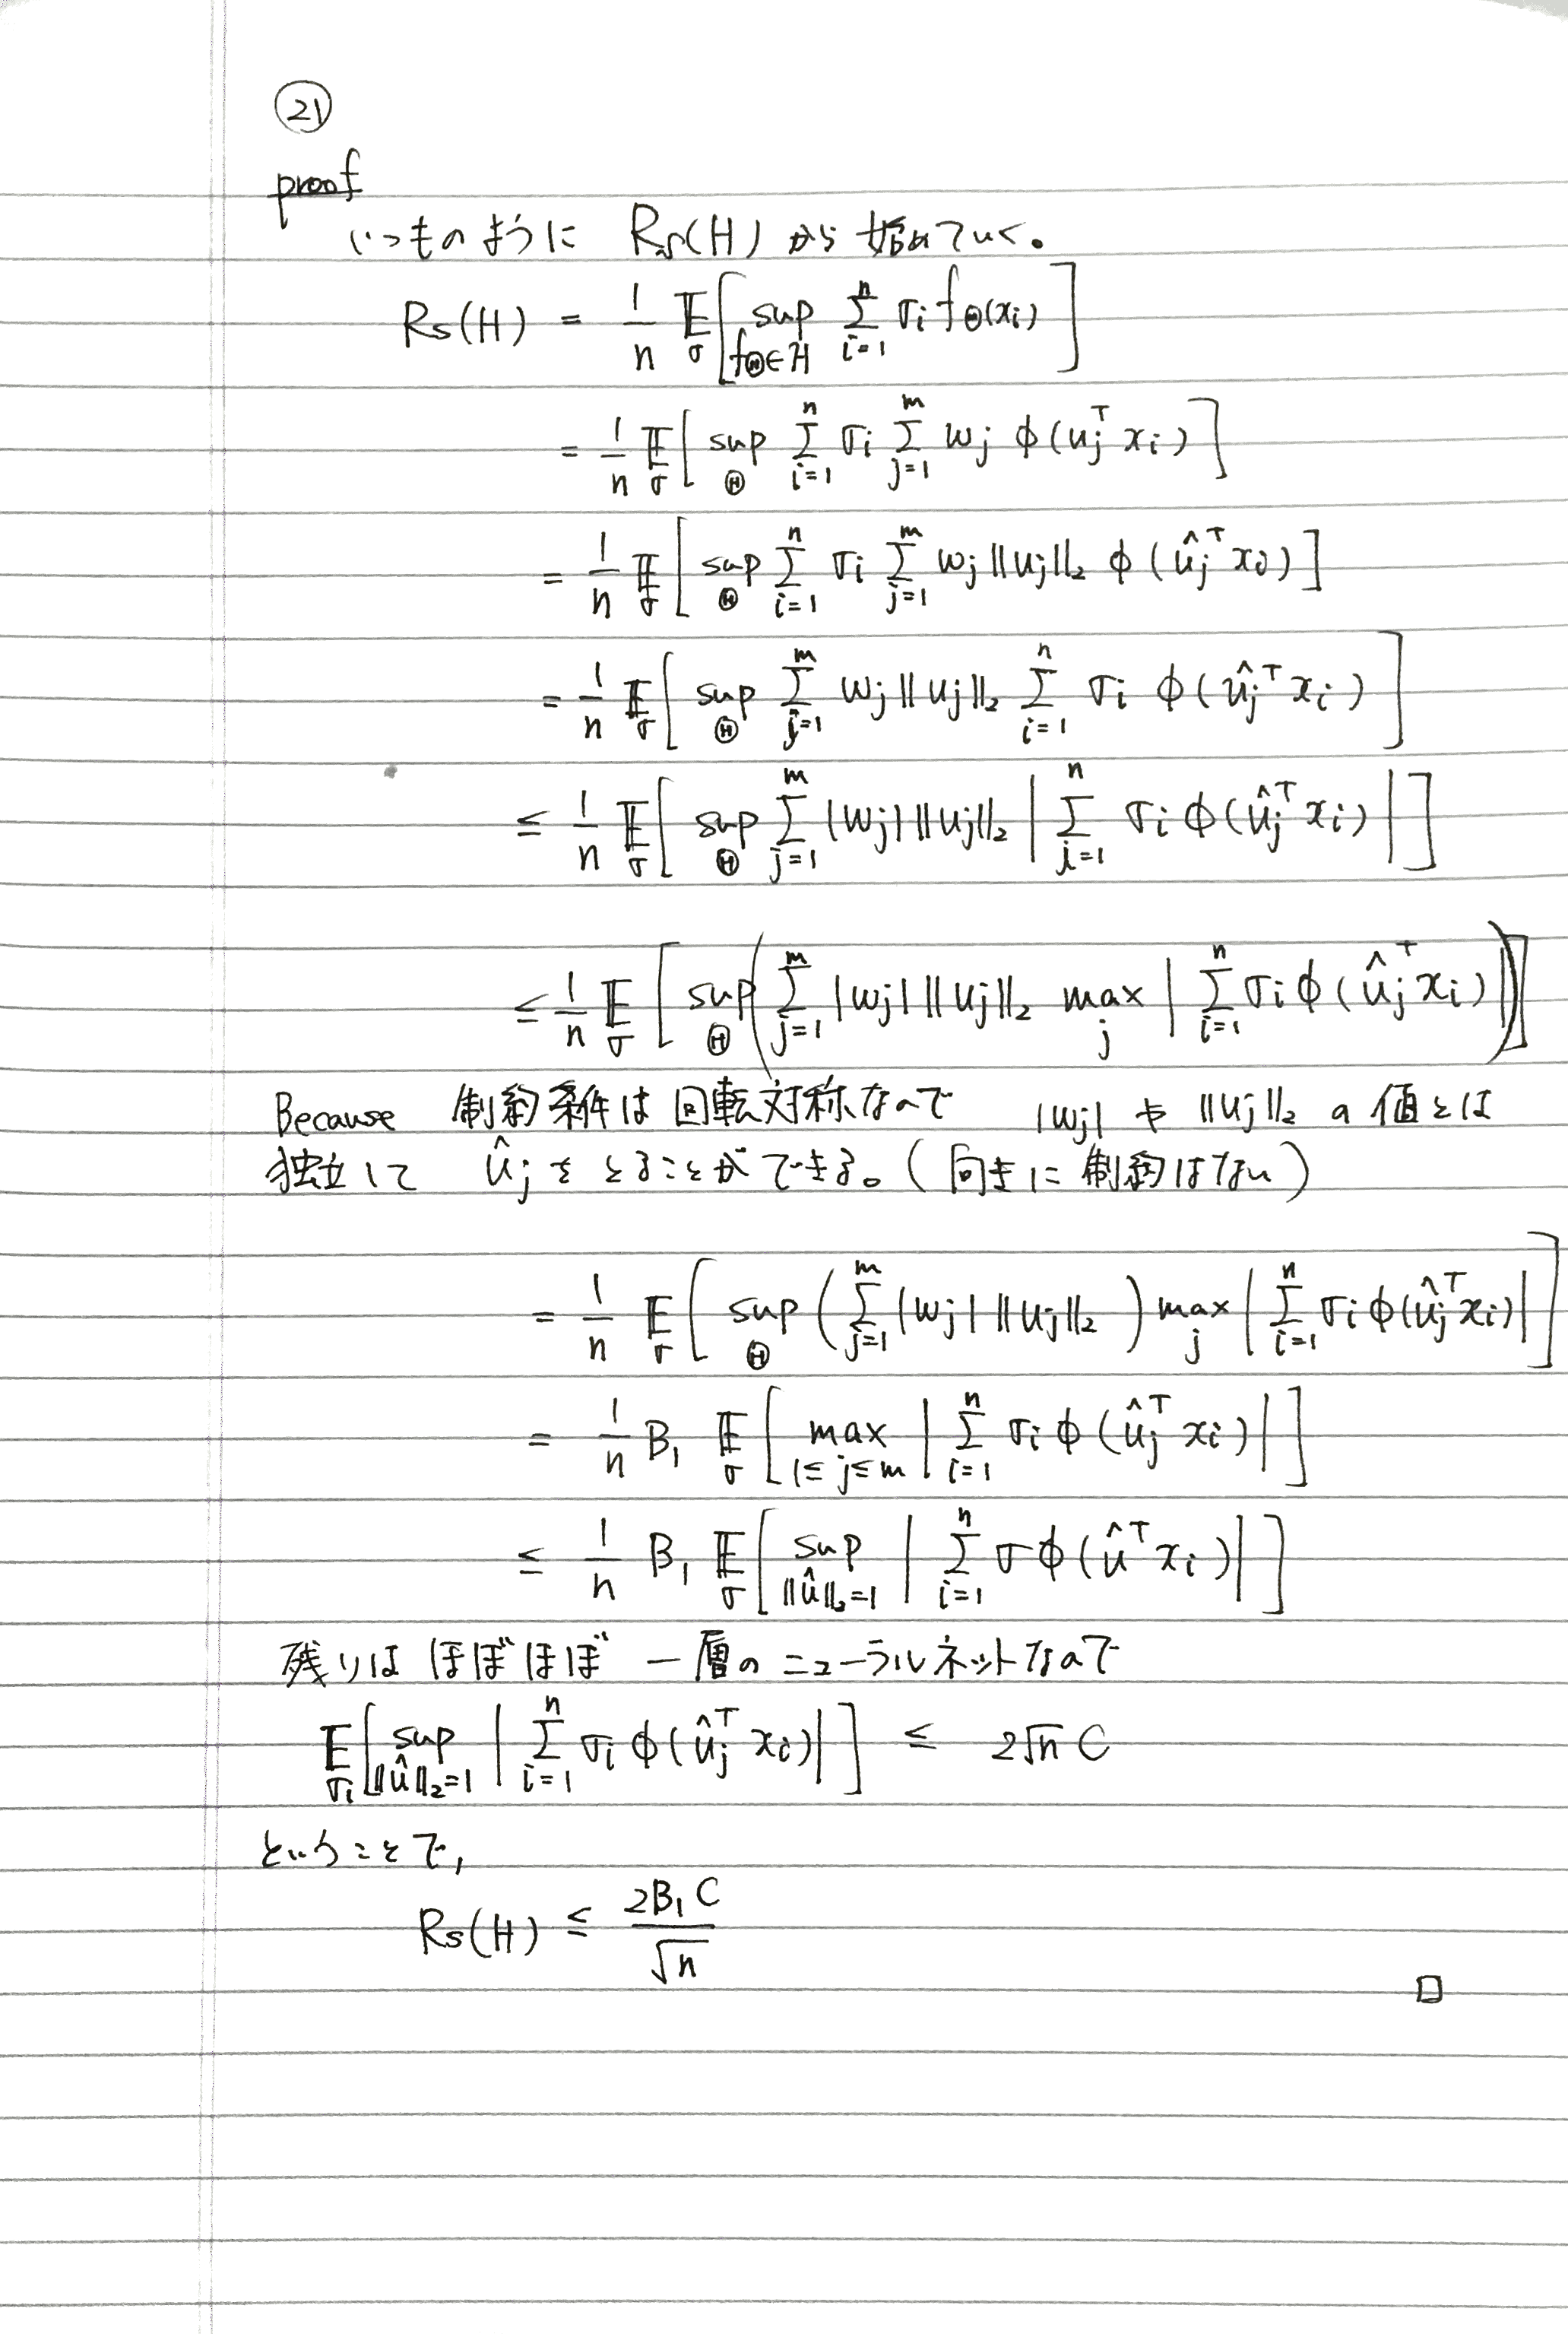 ㉑
proof
いつものように Rs(H) から始めていく。
Rs(H) = 1/n E_σ[ sup_{fΘ∈H} Σ_{i=1}^{n} σi fΘ(xi) ]
= 1/n E_σ[ sup_Θ Σ_{i=1}^{n} σi Σ_{j=1}^{m} wj φ(uj^T xi) ]
= 1/n E_σ[ sup_Θ Σ_{i=1}^{n} σi Σ_{j=1}^{m} wj ||uj||₂ φ(ûj^T xi) ]
= 1/n E_σ[ sup_Θ Σ_{j=1}^{m} wj ||uj||₂ Σ_{i=1}^{n} σi φ(ûj^T xi) ]
≤ 1/n E_σ[ sup_Θ Σ_{j=1}^{m} |wj| ||uj||₂ | Σ_{i=1}^{n} σi φ(ûj^T xi) | ]
≤ 1/n E_σ[ sup_Θ ( Σ_{j=1}^{m} |wj| ||uj||₂ max_j | Σ_{i=1}^{n} σi φ(ûj^T xi) | ) ]
Because 制約条件は回転対称なので |wj| や ||uj||₂ の値とは
独立して ûj をとることができる。(向きに制約はない)
= 1/n E_σ[ sup_Θ ( Σ_{j=1}^{m} |wj| ||uj||₂ ) max_j | Σ_{i=1}^{n} σi φ(ûj^T xi) | ]
= 1/n B₁ E_σ[ max_{1≤j≤m} | Σ_{i=1}^{n} σi φ(ûj^T xi) | ]
≤ 1/n B₁ E_σ[ sup_{||û||₂=1} | Σ_{i=1}^{n} σ φ(û^T xi) | ]
残りは ほぼほぼ 一層のニューラルネットなので
E_{σi}[ sup_{||û||₂=1} | Σ_{i=1}^{n} σi φ(ûj^T xi) | ] ≤ 2√n C
ということで,
Rs(H) ≤ 2B₁C/√n
□